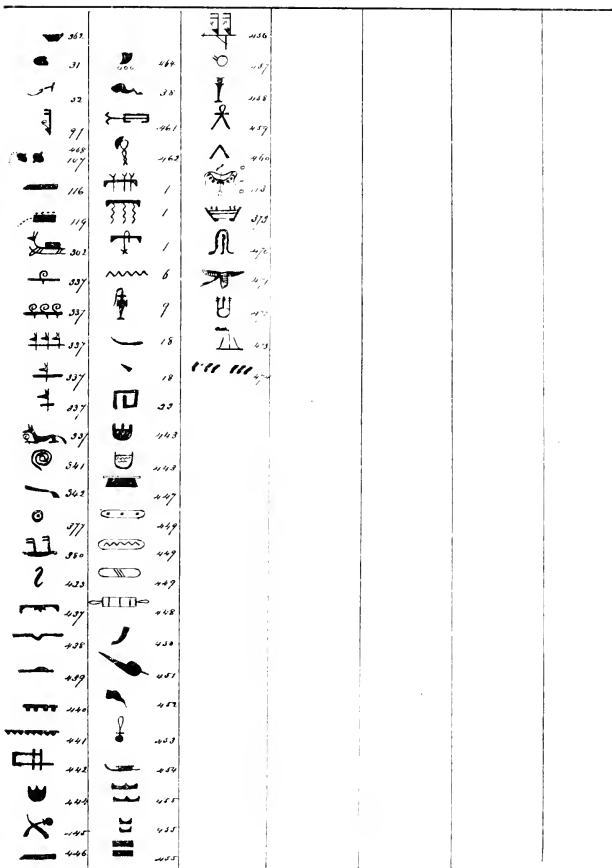 31
91
468
147
116
119
302
337
337
337
337
337
337
341
342
377
380
423
437
438
439
440
441
442
444
445
446
464
38
461
462
1
1
1
6
9
18
18
33
443
443
447
449
449
449
448
450
451
452
453
454
455
455
455
456
457
458
459
460
113
373
470
471